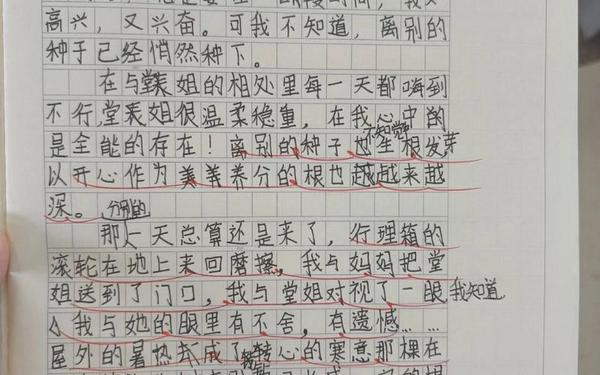 高兴，又兴奋。可我不知道，离别的
种于已经悄然种下。
在与堂表姐的相处里每一天都嗨到
不行，堂表姐很温柔稳重，在我心中的
是全能的存在！离别的种子也不知觉生根发芽
以开心作为养分的根也越来越
深。
那分别的一天总算还是来了，行理箱的
滚轮在地上来回磨擦，我与妈妈把堂
姐送到了门口，我与堂姐对视了一眼我知道
，我与她的眼里有不舍，有遗憾……
屋外的暑热却成了转心的寒意那棵在